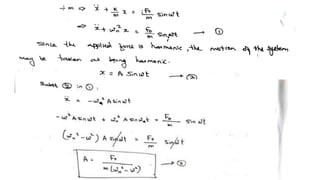 ÷m ⇒ ẍ + k/m x = F₀/m sin ωt
⇒ ẍ + ωₙ² x = F₀/m sin ωt → ①
Since the applied force is harmonic, the motion of the system
may be taken as being harmonic.
x = A sin ωt → ②
Subst ② in ① :
ẍ = -ω² A sin ωt
-ω² A sin ωt + ωₙ² A sin ωt = F₀/m sin ωt
(ωₙ² - ω²) A sin ωt = F₀/m sin ωt
A = F₀ / m (ωₙ² - ω²) →